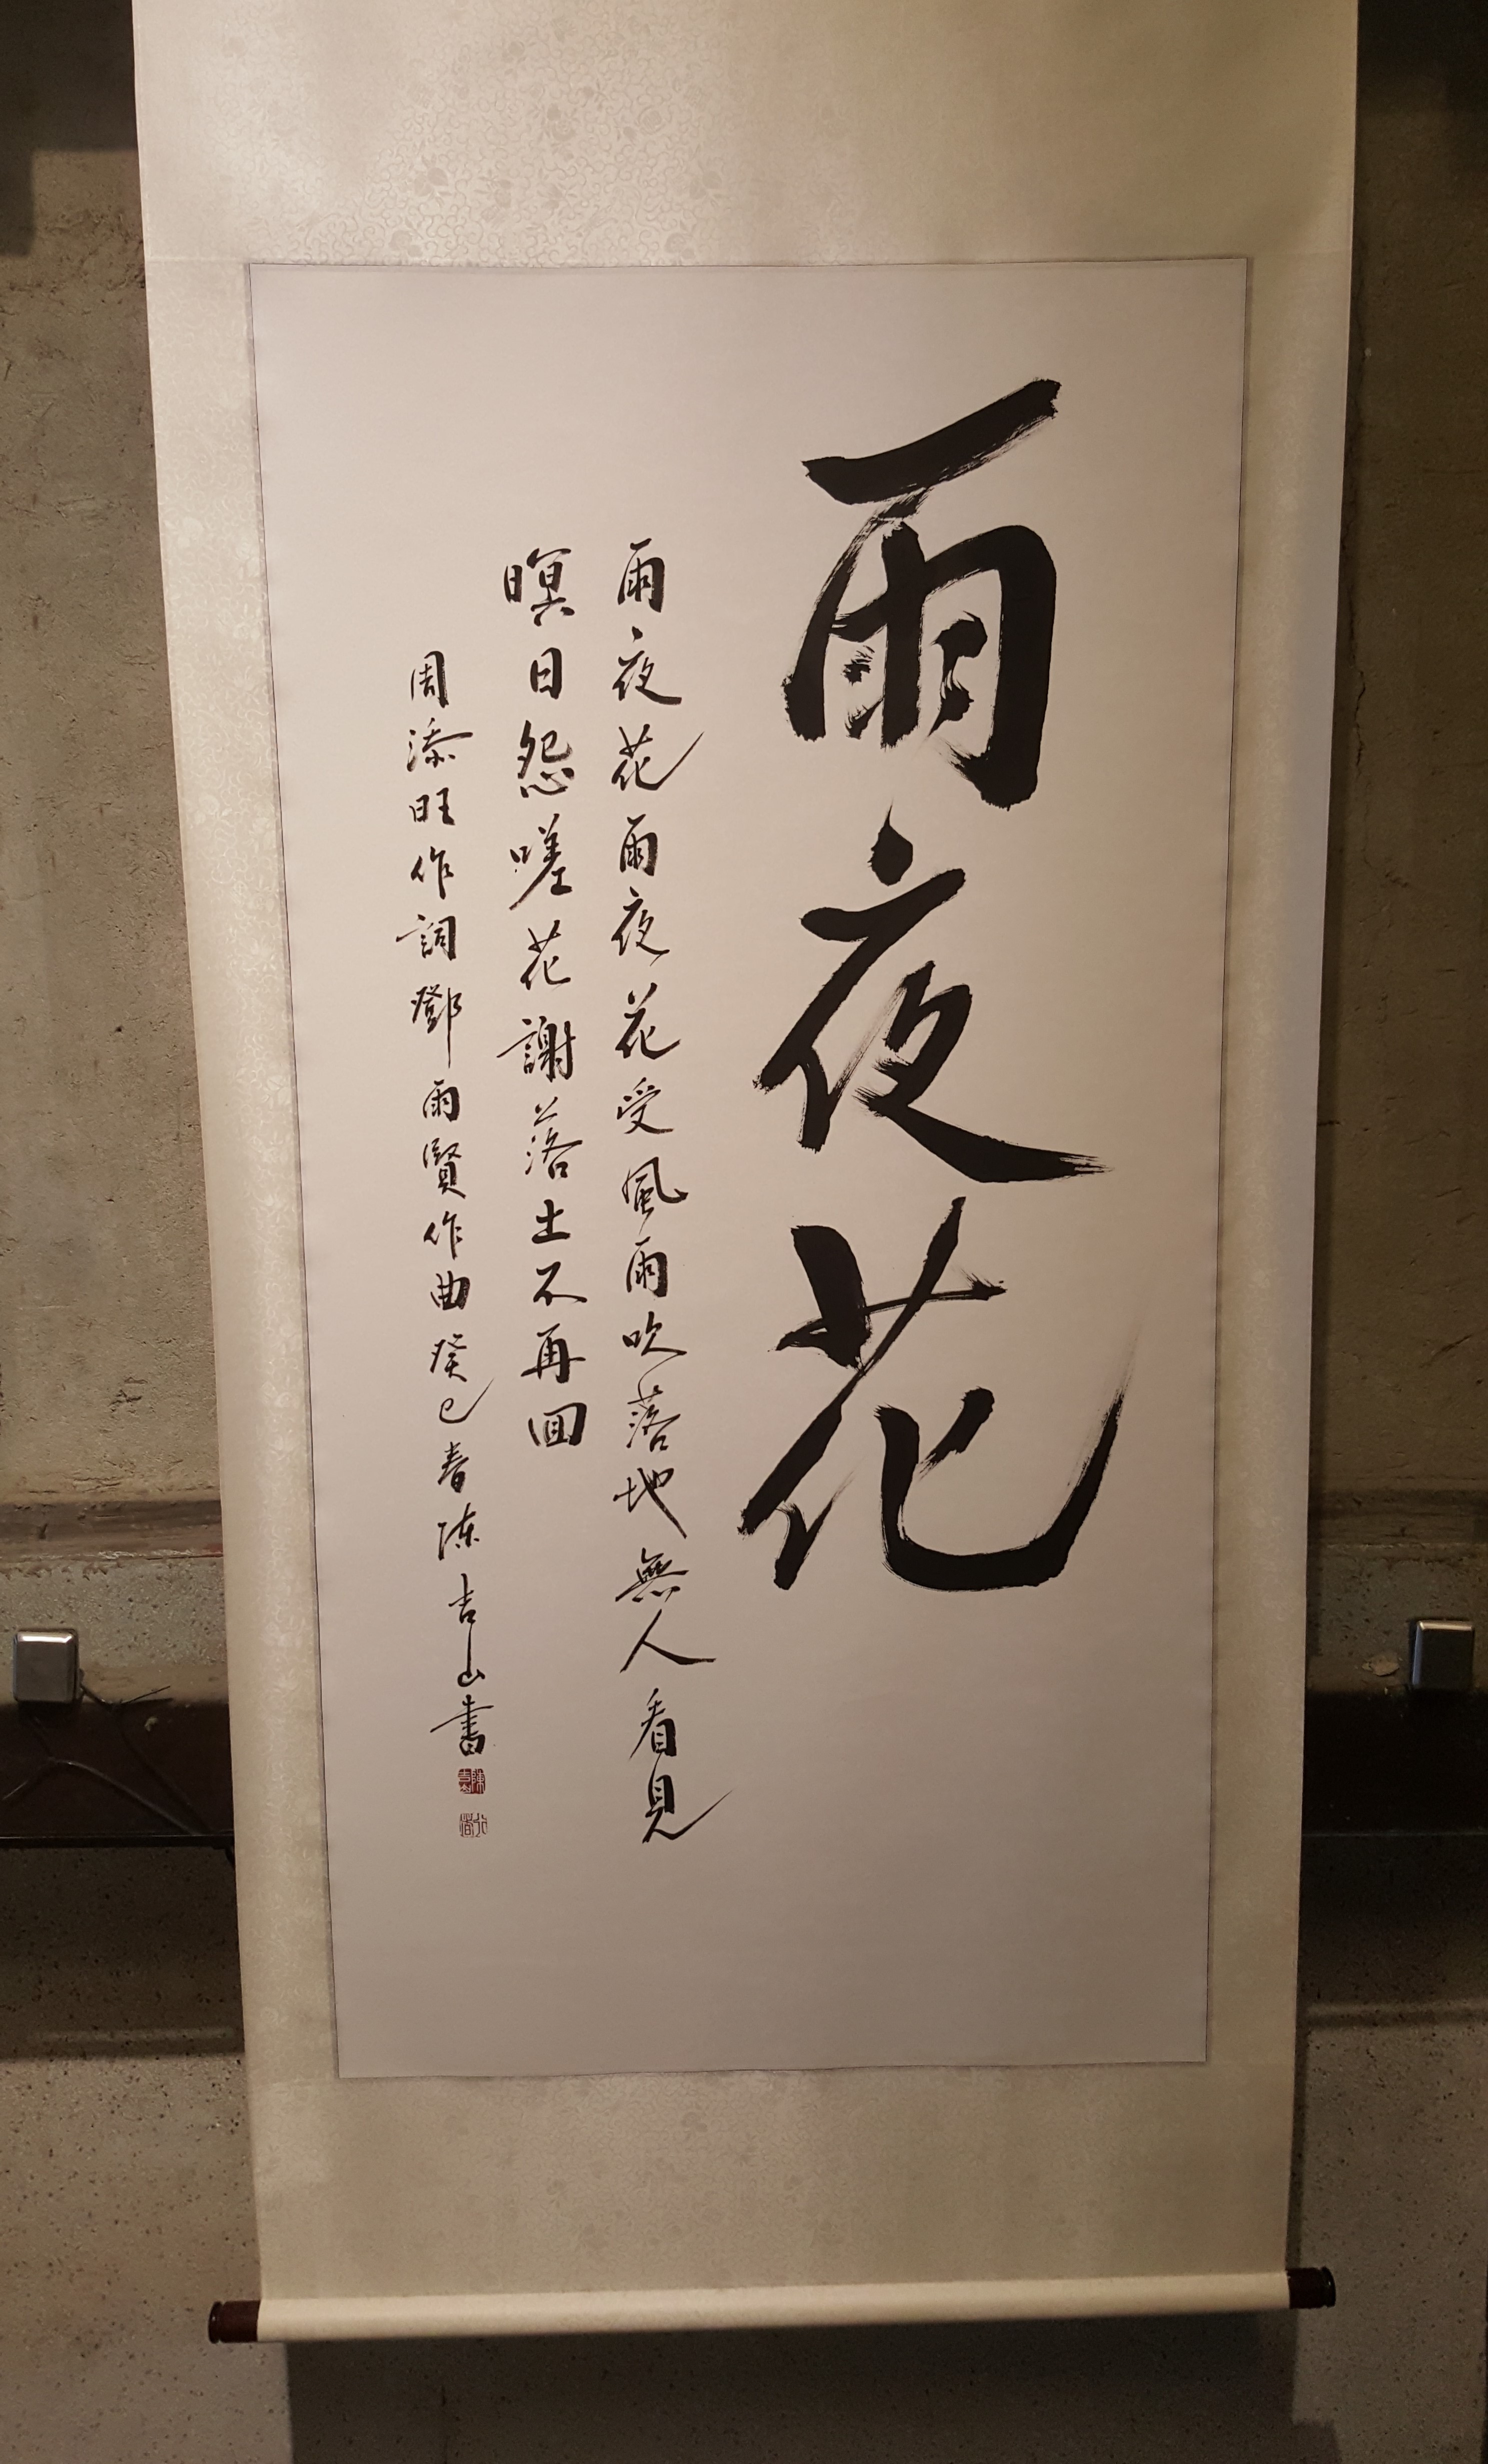 雨夜花
雨夜花雨夜花受風雨吹落地無人看見
暝日怨嗟花謝落土不再回
周添旺作詞鄧雨賢作曲癸巳春陳吉山書
陳吉山